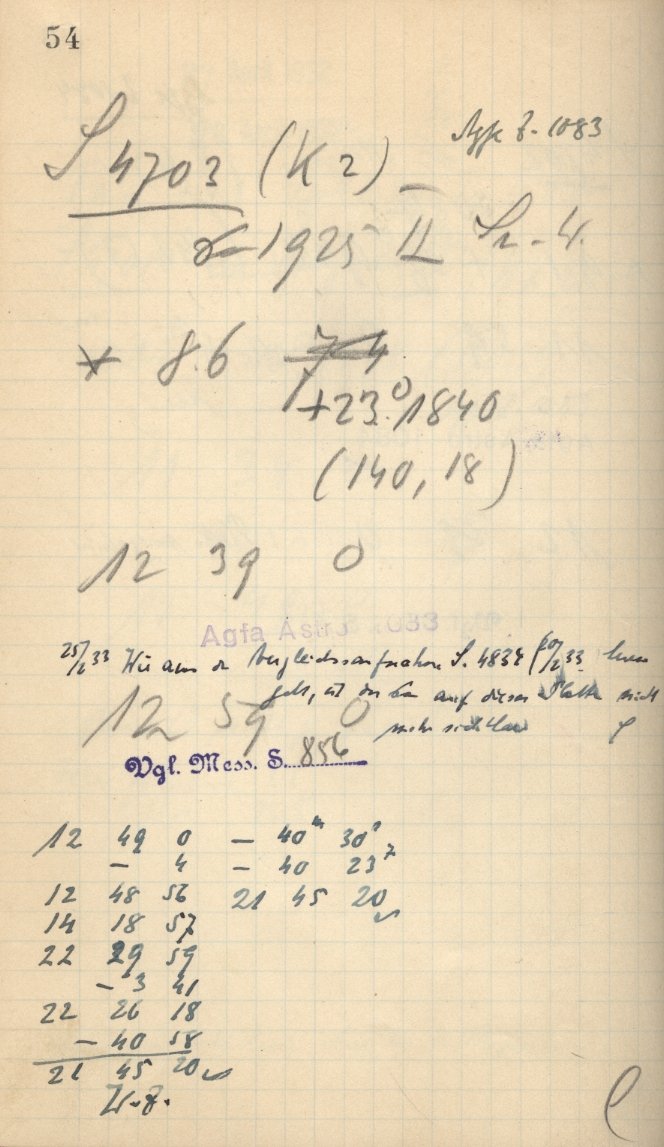 54
Agfa 8-1083
S 4703 (K2)
1925 II
* 8.6 74
+23.°1840
(140, 18)
12 39 0
Agfa Astro 1083
25/2 33 Wie aus der Vergleichsaufnahme S. 4834 33
geht, ist auf dieser Platte nicht
12 59 0
mehr sichtbar
Vgl. Mess. S. 856
12 49 0 — 40ᵐ 30ˢ
— 4 — 40 23,7
12 48 56 21 45 20
14 18 57
22 29 59
— 3 41
22 26 18
— 40 58
21 45 20